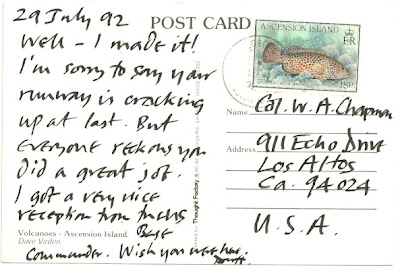 29 July 92
POST CARD
ASCENSION ISLAND
E R
18P
Well - I made it!
I'm sorry to say your
runway is cracking
up at last. But
everyone reckons you
Did a great job.
I got a very nice
reception from
Base
Commander. Wish you were here.
Volcanoes - Ascension Island.
Dave Virden
Thought Factory
Name Col. W. A. Chapman
Address 911 Echo Drive
Los Altos
Ca. 94024
U.S.A.